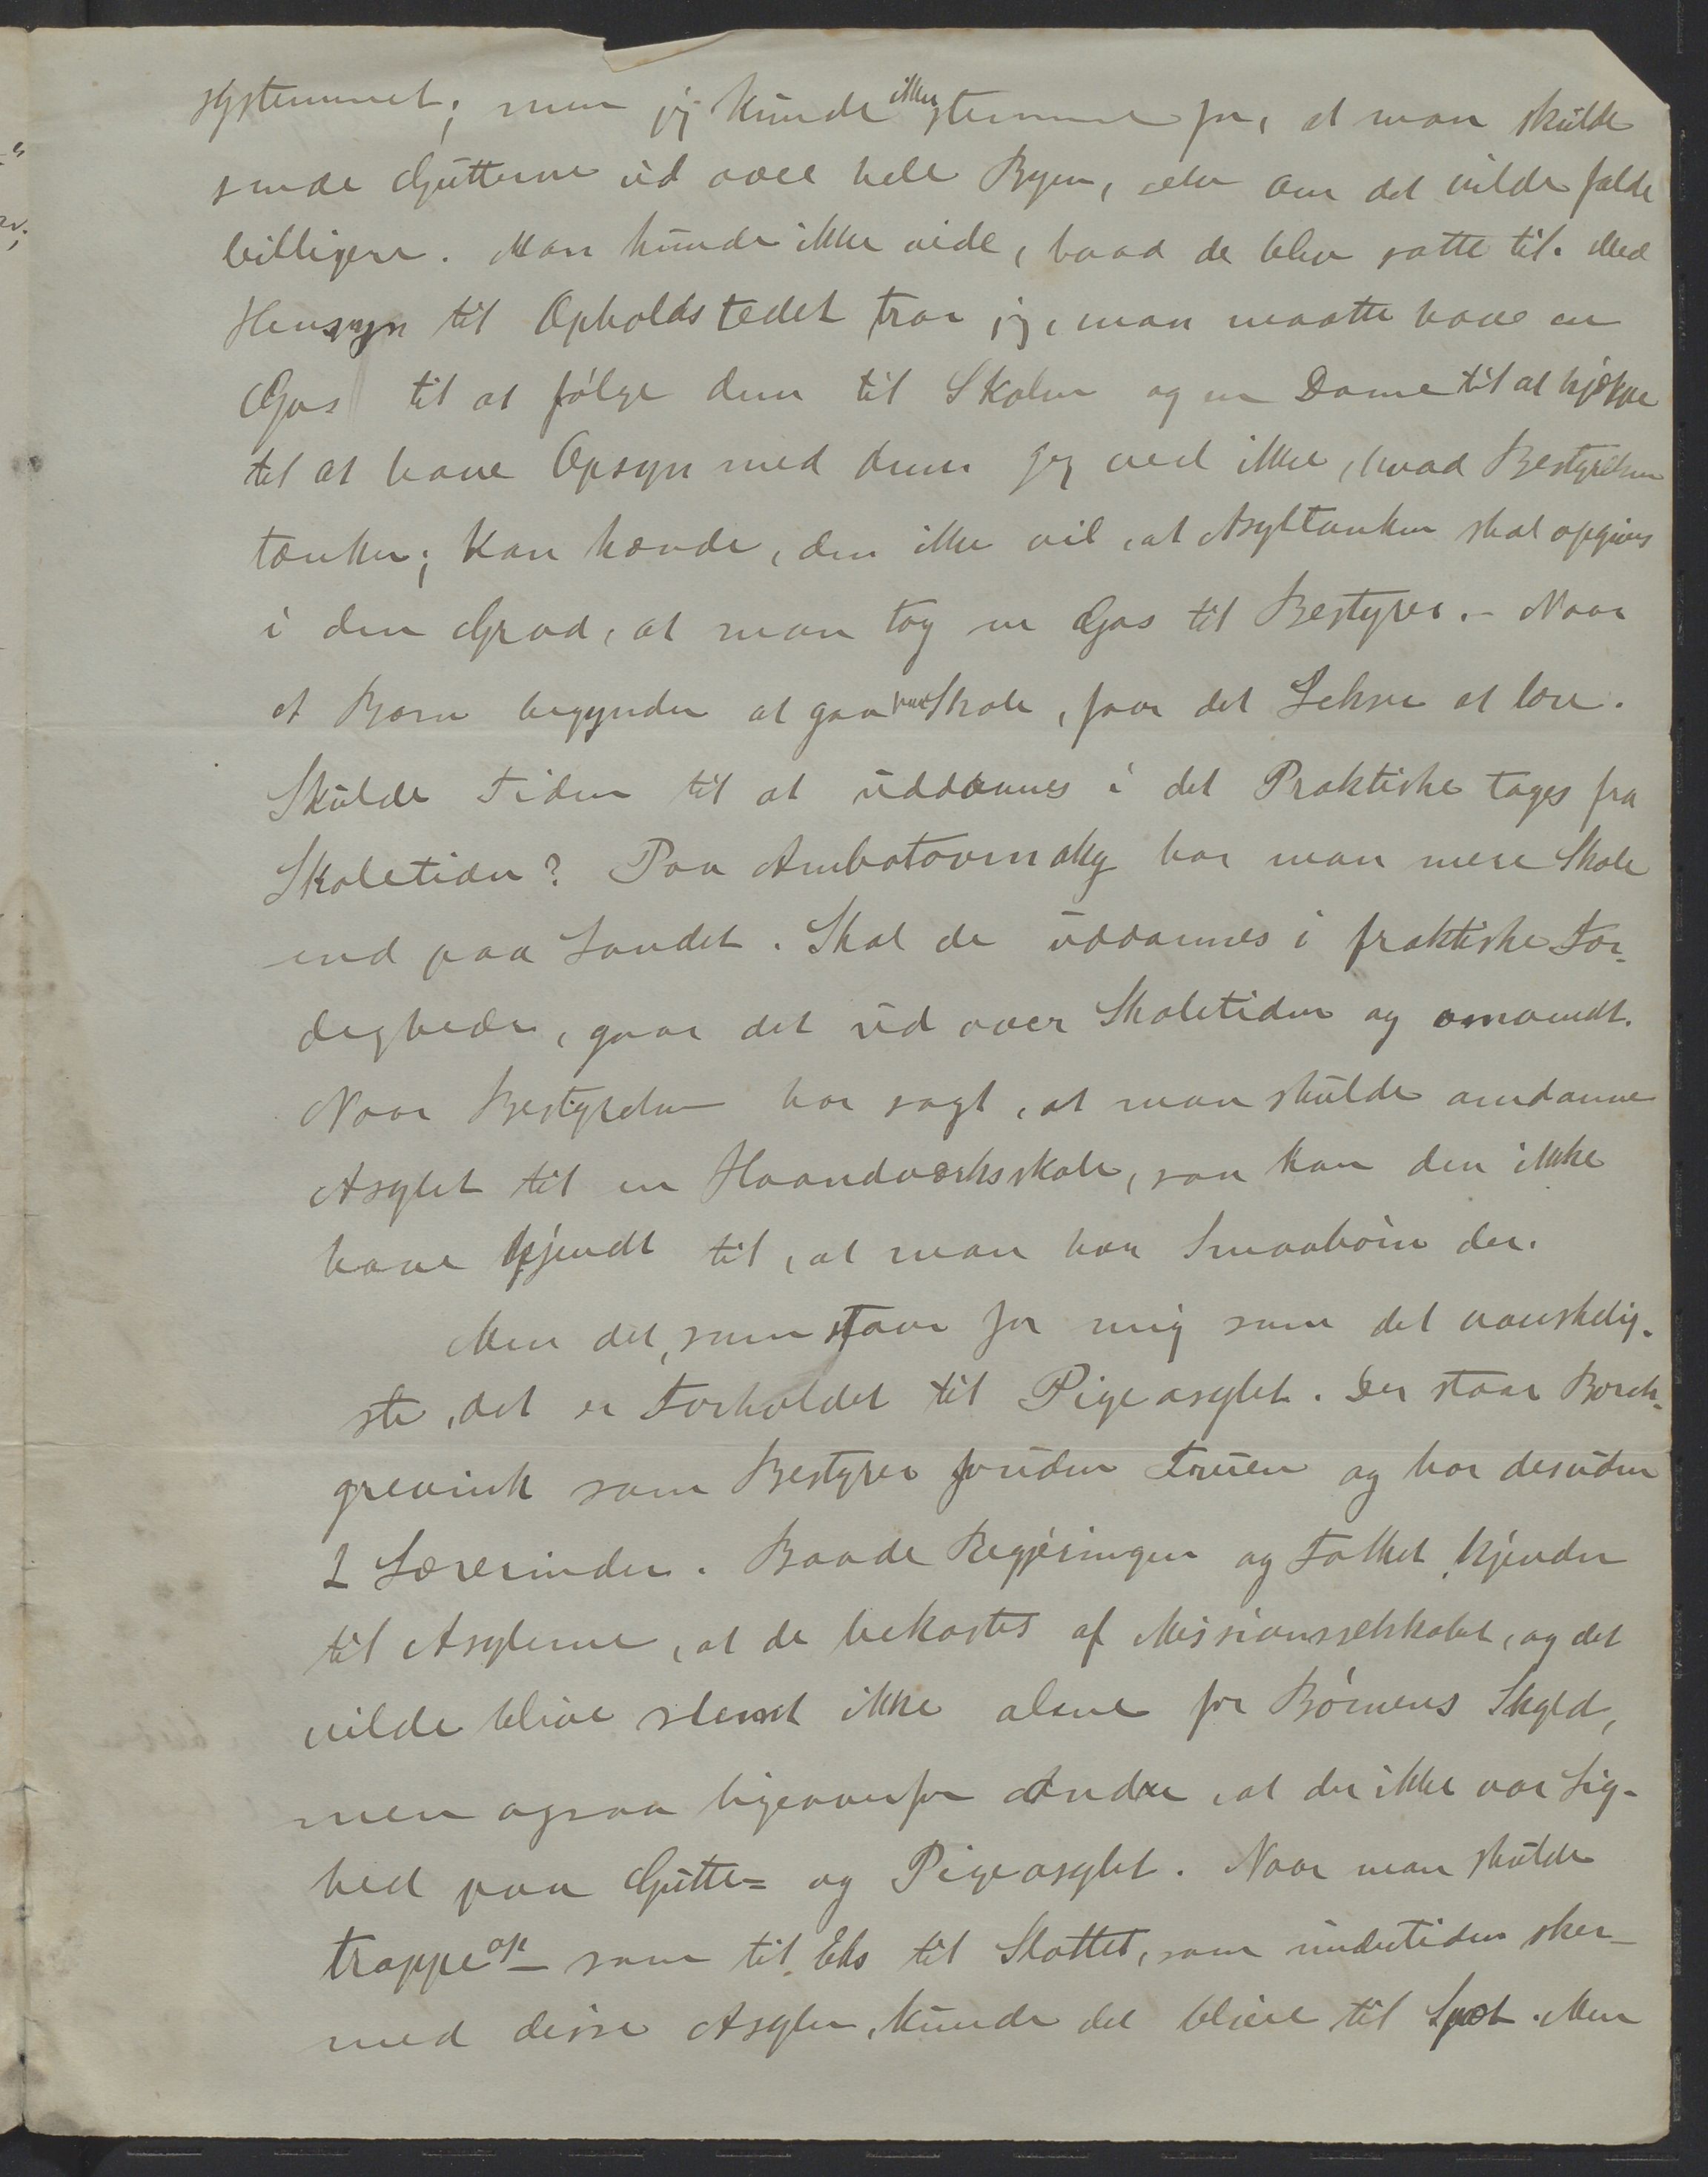 systemmet; men jeg kunde ikke stemme for, at man skulde
sende Gutterne ud over hele Byen, selv om det vilde falde
billigere. Man kunde ikke vide, hvad de blev satte til. Med
Hensyn til Opholdstedet tror jeg, man maatte have en
Gas til at følge dem til Skolen og en Dame til at hjælpe
til at have Opsyn med dem. Jeg ved ikke, hvad Bestyrelsen
tænker; kan hænde, den ikke vil, at Asyltanken skal opgives
i den Grad, at man tog en Gas til Bestyrer. – Naar
et Barn begynder at gaa paa Skole, faar det Lekser at lære.
Skulde Tiden til at uddannes i det Praktiske tages fra
Skoletiden? Paa Ambatovinaky har man mere Skole
end paa Landet. Skal de uddannes i praktiske Fær-
digheder, gaar det ud over Skoletiden og omvendt.
Naar Bestyrelsen har sagt, at man skulde omdanne
Asylet til en Haandværksskole, saa kan den ikke
have kjendt til, at man har Smaabørn der.
Men det, som staar for mig som det vanskelig-
ste, det er Forholdet til Pigeasylet. Der staar Borch-
grevink som Bestyrer foruden Fruen og har desuden
2 Lærerinder. Baade Regjeringen og Folket kjender
til Asylerne, at de bekostes af Missionsselskabet, og det
vilde blive slemt ikke alene for Børnens Skyld,
men ogsaa ligeoverfor Andre, at der ikke var Lig-
hed paa Gutte- og Pigeasylet. Naar man skulde
troppe op – som til Eks til Slottet, som undertiden sker –
med disse Asyler, kunde det blive til Spot. Men